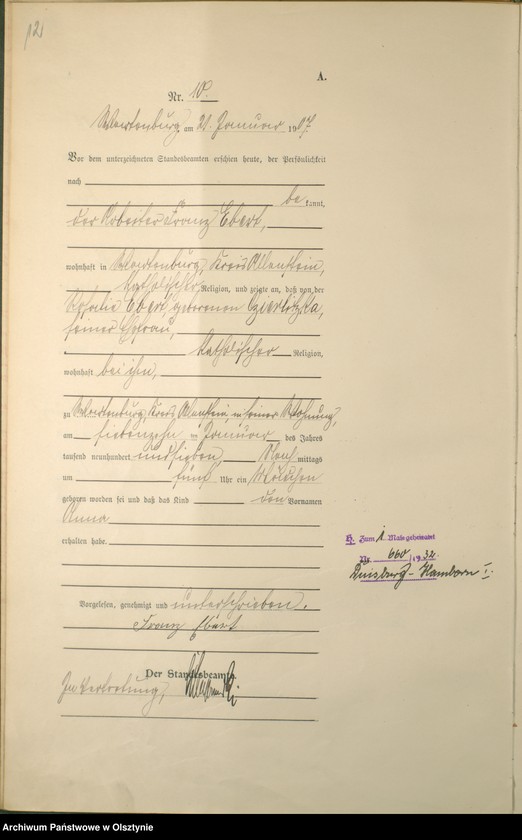 12
A.
Nr. 10.
Wartenburg, am 21. Januar 1907.
Vor dem unterzeichneten Standesbeamten erschien heute, der Persönlichkeit
nach
bekannt,
der Arbeiter Franz Ebert,
wohnhaft in Wartenburg, Kreis Allenstein,
katholischer Religion, und zeigte an, daß von der
Rosalie Ebert, geborenen
seiner Ehefrau,
katholischer Religion,
wohnhaft bei ihm,
zu Wartenburg, Kreis Allenstein, in seiner Wohnung,
am siebenzehn ten Januar des Jahres
tausend neunhundert und sieben Nachmittags
um fünf Uhr ein Mädchen
geboren worden sei und daß das Kind den Vornamen
Anna
erhalten habe.
H. Zum 1 Male geheiratet
Nr. 660/1932.
Duisburg-Hamborn I.
Vorgelesen, genehmigt und unterschrieben.
Franz Ebert
Der Standesbeamte.
In Vertretung,
Archiwum Państwowe w Olsztynie